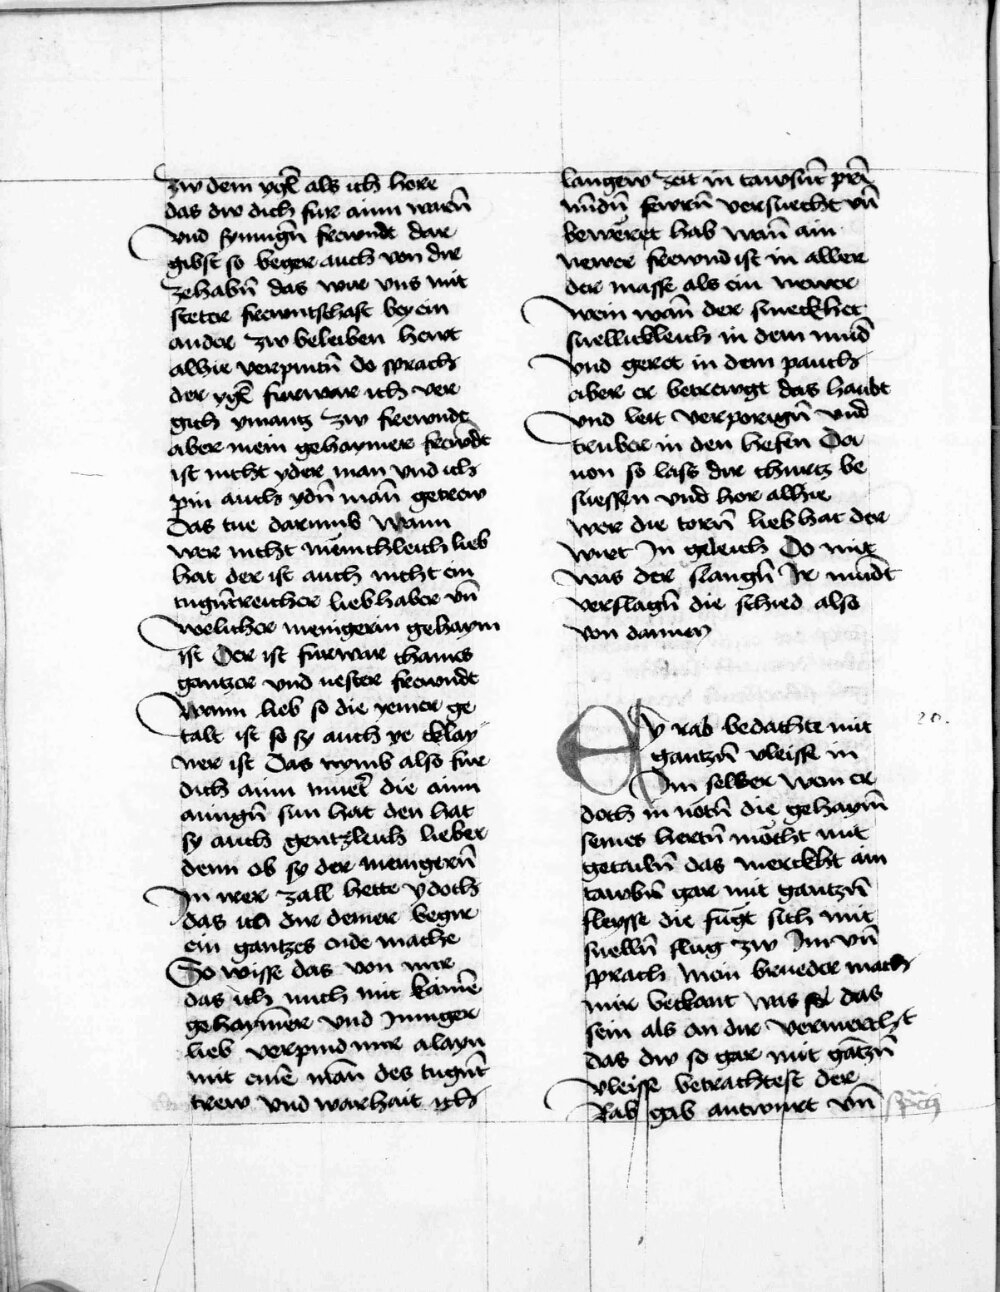 zw dem ygl̄ als ich hore
das dw dich fur ainn warn̄
vnd synnign̄ frewndt dar
gibst so beger auch von dir
ze habn̄ das wir vns mit
steter frewntschaft bey ein
ander zw beleiben hewt
alhie verpintn̄ Do sprach
der ygl̄ furwar ich ver
gich ymantz zw frewndt
aber mein gehaymer frewdt
ist nicht yder man vnd ich
pin auch ydn̄ man̄ getrew
Das tue darumb Wann
wer nicht mēnichleich lieb
hat der ist auch nicht ein
tugn̄treicher liebhaber vn̄
welicher menigerm gehaym
ist Der ist furwar chaines
gantzer vnd uester frewndt
Wann lieb so die yemer ge
talt ist so sy auch ye cklay
ner ist Das nymb also fur
dich ainn muet̄ die ainn
ainign̄ sun hat den hat
sy auch gentzleich lieber
denn ob sy der menigern̄
In irer zall hette ydoch
das ich dir deiner begir
ein gantzes ende mache
So wisse das von mir
das ich mich mit kainē
gehaymer vnd Inniger
lieb verpind nur alayn
mit einē man̄ des tugn̄t
trew vnd warhait ich
langew zeit in tawsn̄t prn̄
nūdn̄ fewrn̄ versuecht vn̄
beweret hab wan̄ ain
newer frewnd ist in aller
der masse als ein newer
Wein wan̄ der smeckhet
snellickleich in dem mūd
vnd geret in dem pauch
aber er betrewgt das haubt
vnd leit verporign̄ vnd
truber in den hefen Da
uon so lass dir churtz be
sliessen vnd hor alhie
Wer die torn̄ lieb hat der
wirt In geleich Do mit
was der slangn̄ Ir mūdt
verslagn̄ die schied also
von dannen
Ey rab bedachte mit
gantzn̄ vleisse in
Im selber wen er
doch in nötn̄ die gehaym̄
seines hertn̄ möcht mit
getailn̄ das merckht ain
tawbn̄ gar mit gantzn̄
fleysse die fügt sich mit
snelln̄ flug zw Im vn̄
sprach Mein brueder mach
mir bekant was sol das
sein als an dir vermercht
das dw so gar mit gātzn̄
vleisse betrachtest der
Rab gab antwurt vn̄
20.